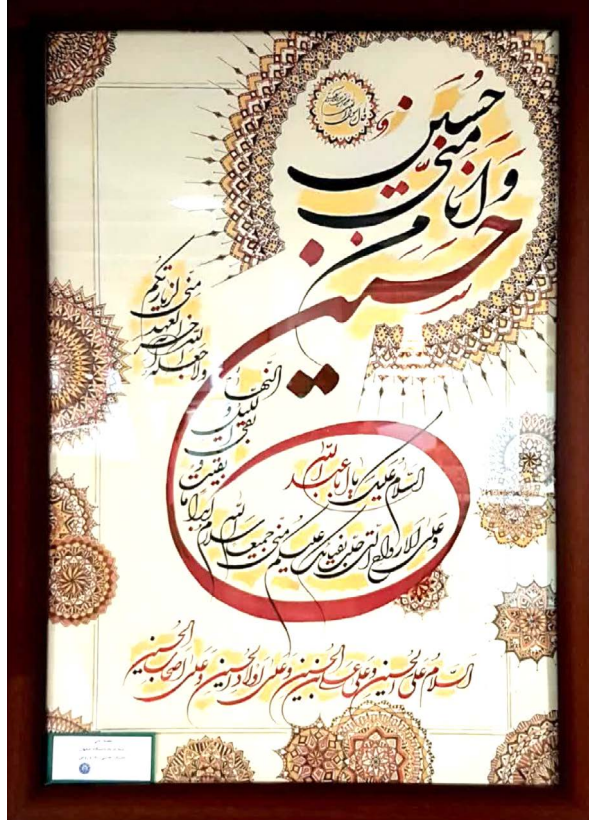 قال رسول الله
حسین منی
و انا من
حسین
السلام علیک یا ابا عبدالله
و علی الارواح التی حلت بفنائک علیکم منی جمیعا سلام الله ابدا ما
بقیت و
بقی
اللیل و
النهار
ولا جعله
الله آخر العهد
منی لزیارتکم
السلام علی الحسین و علی علی بن الحسین و علی اولاد الحسین و علی اصحاب الحسین